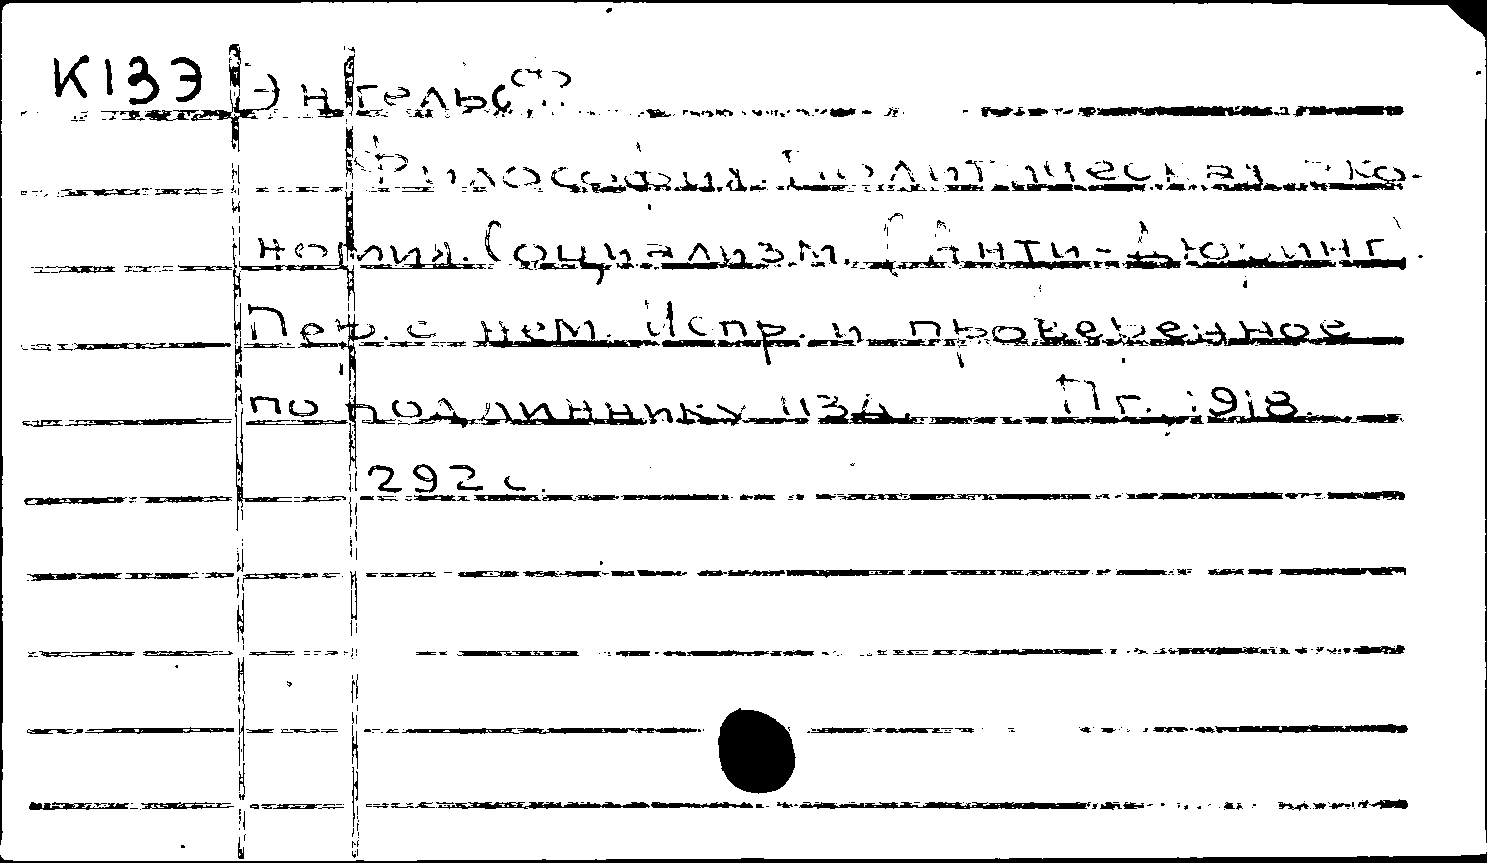 К13Э Энгельс Ф.
Философия. Политическая эко-
номия. Социализм. (Анти-Дюринг).
Пер. с нем. Испр. и проверенное
по подлиннику изд. Пг., 1918.
292 с.